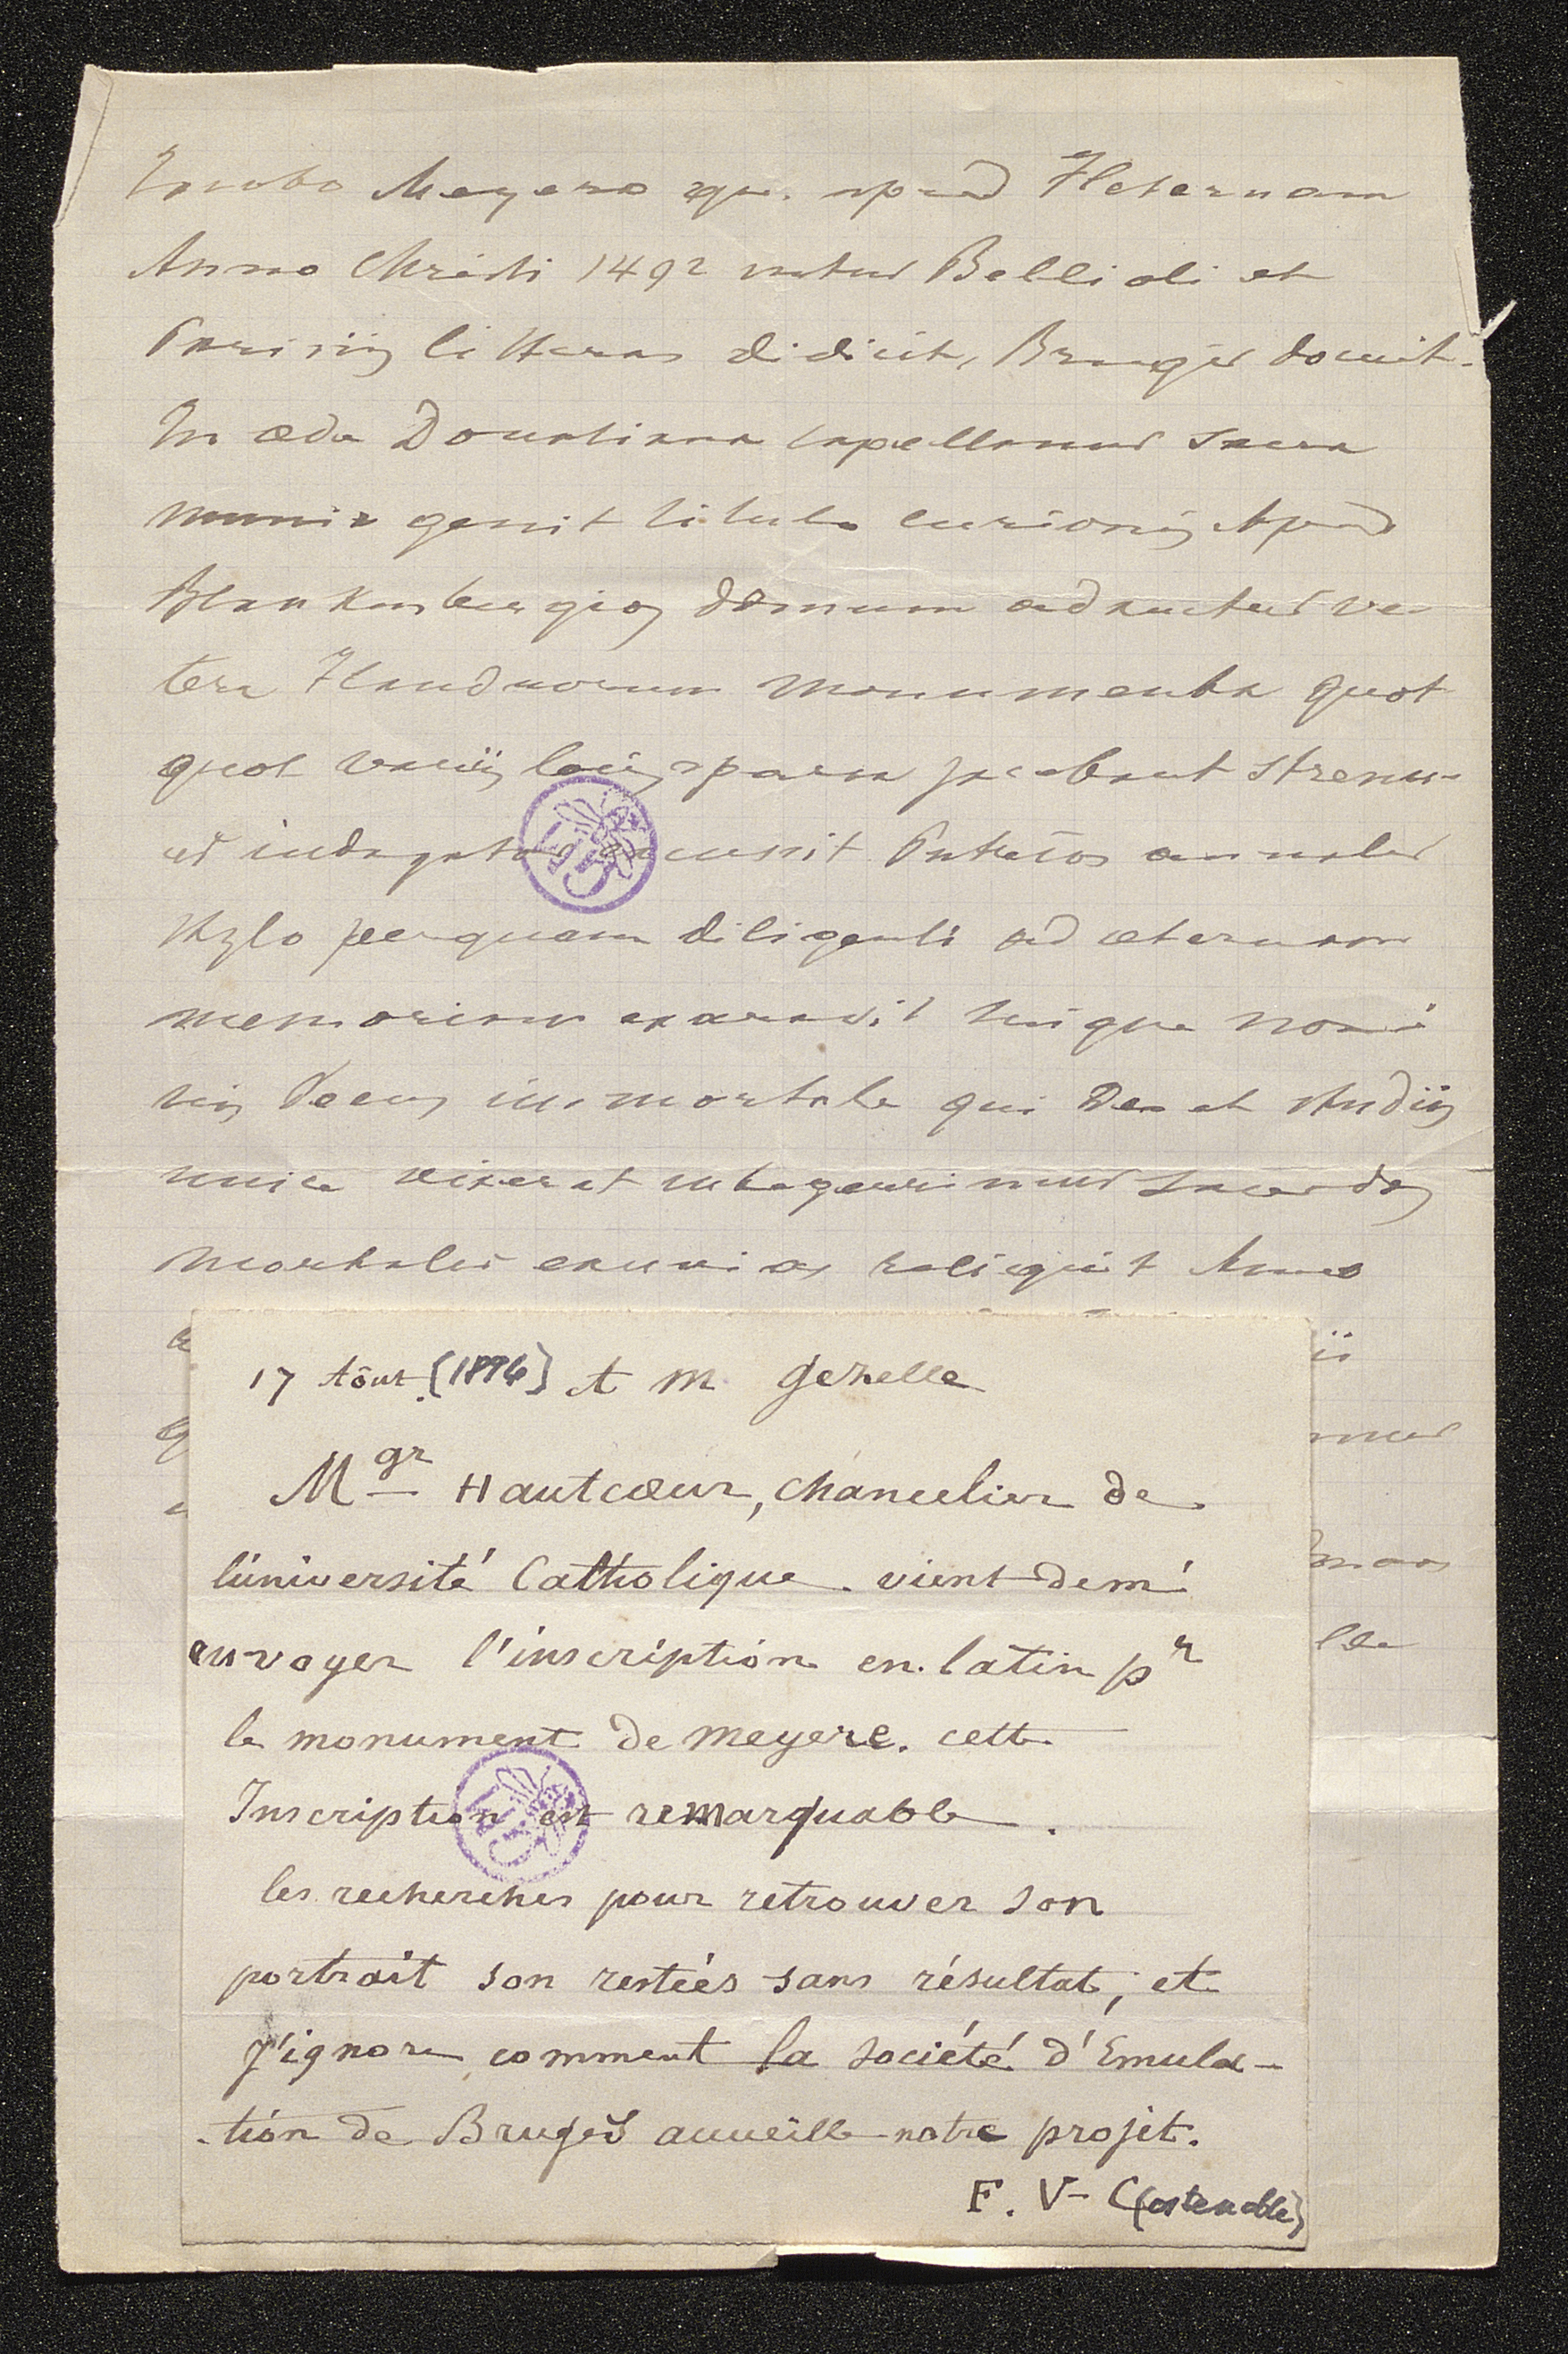 Jacobo Meyero qui apud Fleternam
Anno Christi 1492 natus Bellioli et
Parisiis litteras didicit, Brugis docuit.
In æde Donatiana capellanus sacra
munia gessit titulo curionis Apud
Blankenbergios domum adauctus ve-
tera Flandrorum monumenta quot
quot variis locis sparsa jacebant strenu-
us indagator excussit Patrios annales
stylo perquam diligenti ad æternam
memoriam exaravit suique nomi
nis decus immortale qui Deo et studiis
unice vixerat integerrimus sacerdos
mortales exuvias reliquit Anno
17 Aôut. [1896] A M. Gezelle
Mgr Hautcœur, chancelier de
l'université Catholique. vient de m'
envoyer l'inscription en latin pr
le monument de Meyere. cette
Inscription est remarquable.
les recherches pour retrouver son
portrait son restées sans résultat, et
J'ignore comment la société d'Emula-
-tion de Bruges accueille notre projet.
F. V- C(ostenoble)